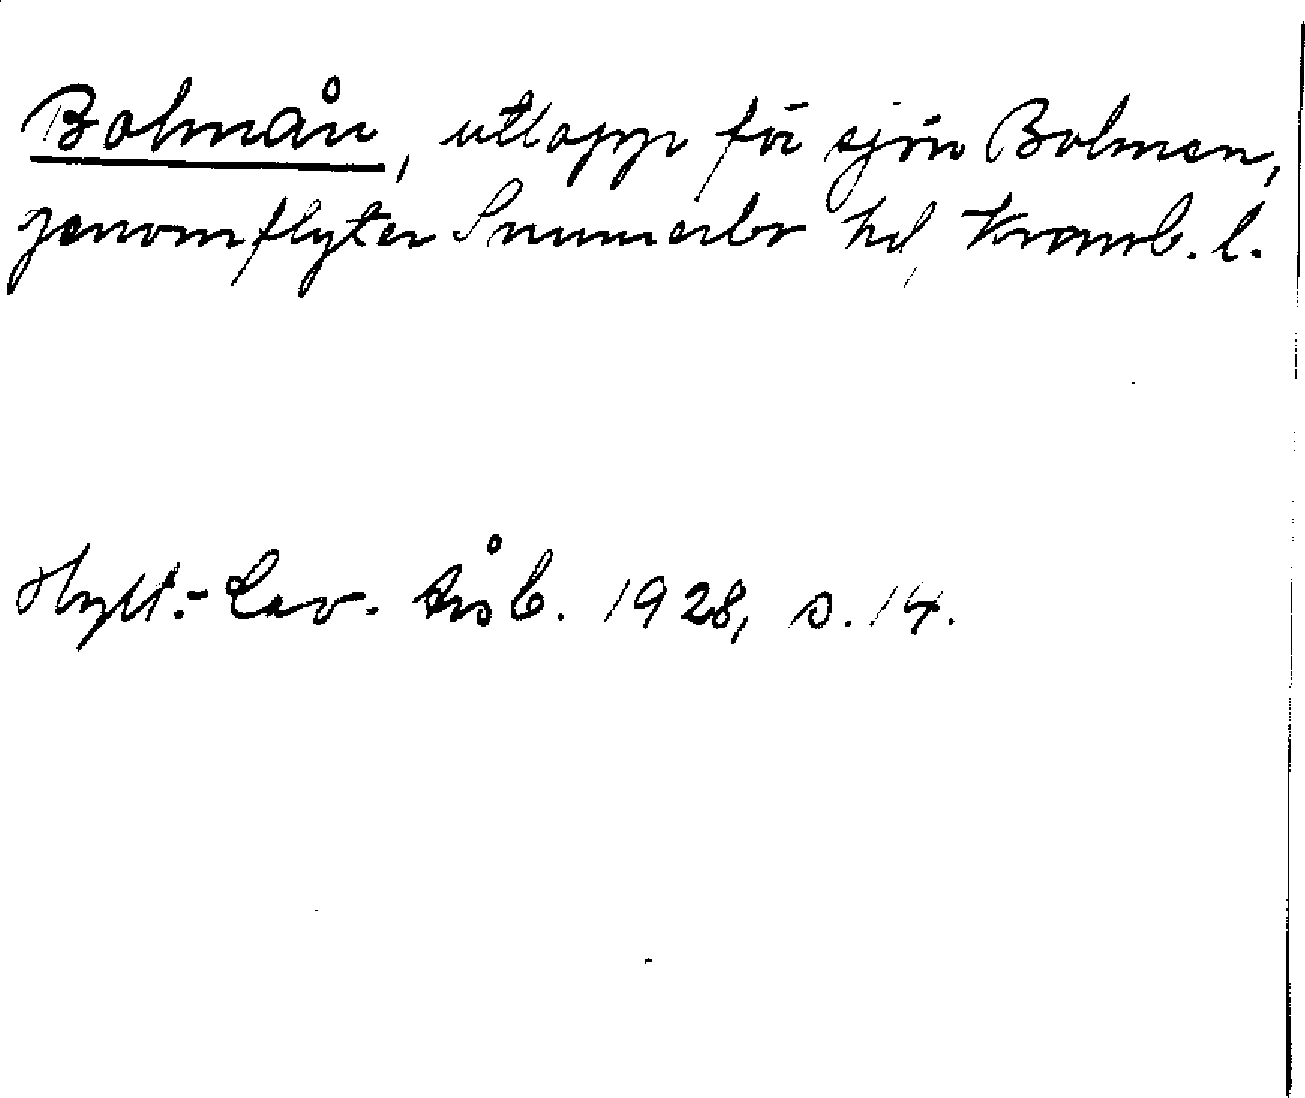 Bolmån, utlopp för sjön Bolmen,
genomflyter Sunnerbo hd, Kronob. l.
Hylt.-Cav. Årsb. 1928, s. 14.